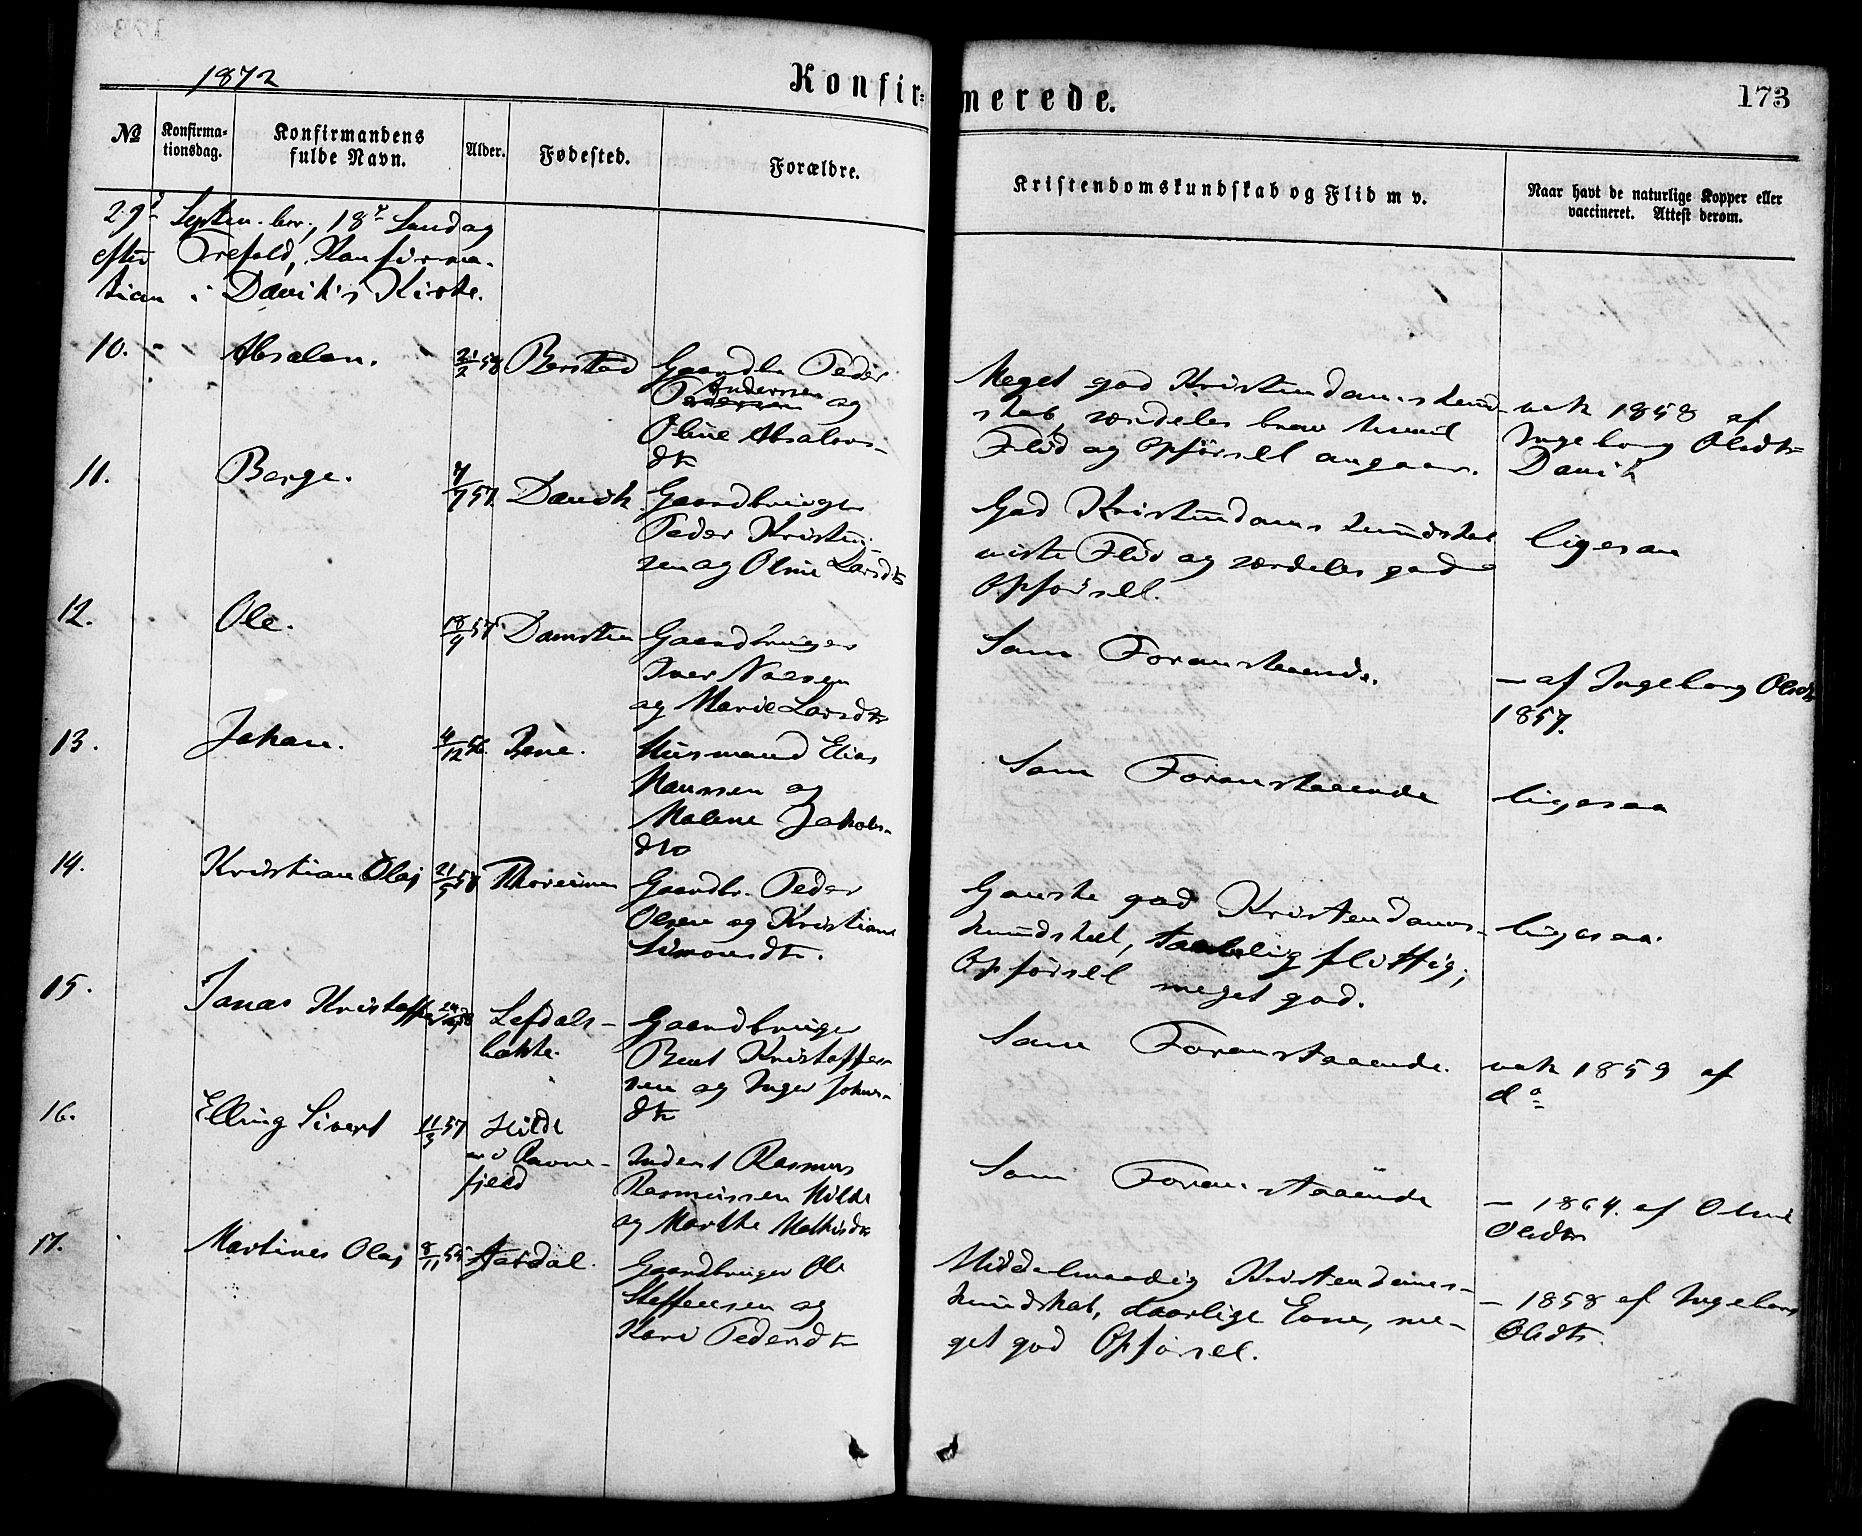 1872
Konfir=
merede.
173
№
Konfirma-
tionsdag.
Konfirmandens
fulde Navn.
Alder.
Fødested.
Forældre.
Kristendomskundskab og Flid m v.
Naar havt de naturlige Kopper eller
vaccineret. Attest derom.
29de Septem.ber, 18de Søndag
efter Trefold, Konfirma-
tion i Daviks Kirke.
10.
Absalon.
21/2 58
Berstad
Gaardbr. Peder
Andersen
Pedersen og
Oline Absalons-
dtr
Meget god Kristendomskund-
skab, særdeles brav hvad
Flid og Opførsell angaar.
vak 1858 af
Ingeborg Olsdtr=
Davik
11.
Berge.
7/7 57.
Davik
Gaardbruger
Peder Kristen-
sen og Oline Larsdtr
God Kristendoms kundskab
viste Flid og særdeles god
Opførsell.
ligesaa
12.
Ole.
18/9 57
Domsten
Gaardbruger
Iver Nilsen
og Marie Larsdtr
Som Foranstaaende.
— af Ingeborg Olsdtr
1857.
13.
Johan.
4/12 56.
Rene.
Husmand Elias
Hanssen og
Malene Jakobs-
dtr
Som Foranstaaende
ligesaa
14.
Kristian Olaj
21/5 58
Thoreimen
Gaardbr. Peder
Olsen og Kristiane
Simonsdtr.
Ganske god Kristendoms-
kundskab, taalelig flittig;
Opførsell meget god.
ligesaa.
15.
Jonas Kristoffer
Lefdals-
bakke.
Gaardbruger
Bent Kristoffer-
sen og Inger Johns-
dtr
Som Foranstaaende.
vak 1859 af
do
16.
Elling Sivert
11/3 57
Hilde
nu i Ravne-
fjeld
Inderst Rasmus
Rasmussen Hilde
og Marthe Mathisdtr
Som Foranstaaende
— 1864. af Oline
Olsdtr
17.
Martines Olaj
8/11 55
Aardal.
Gaardbruger Ole
Steffensen og
Kari Pedersdtr
Middelmaadig Kristendoms-
kundskab, daarlige Evne, me-
get god Opførsel.
— 1858 af Ingeborg
Olsdtr.